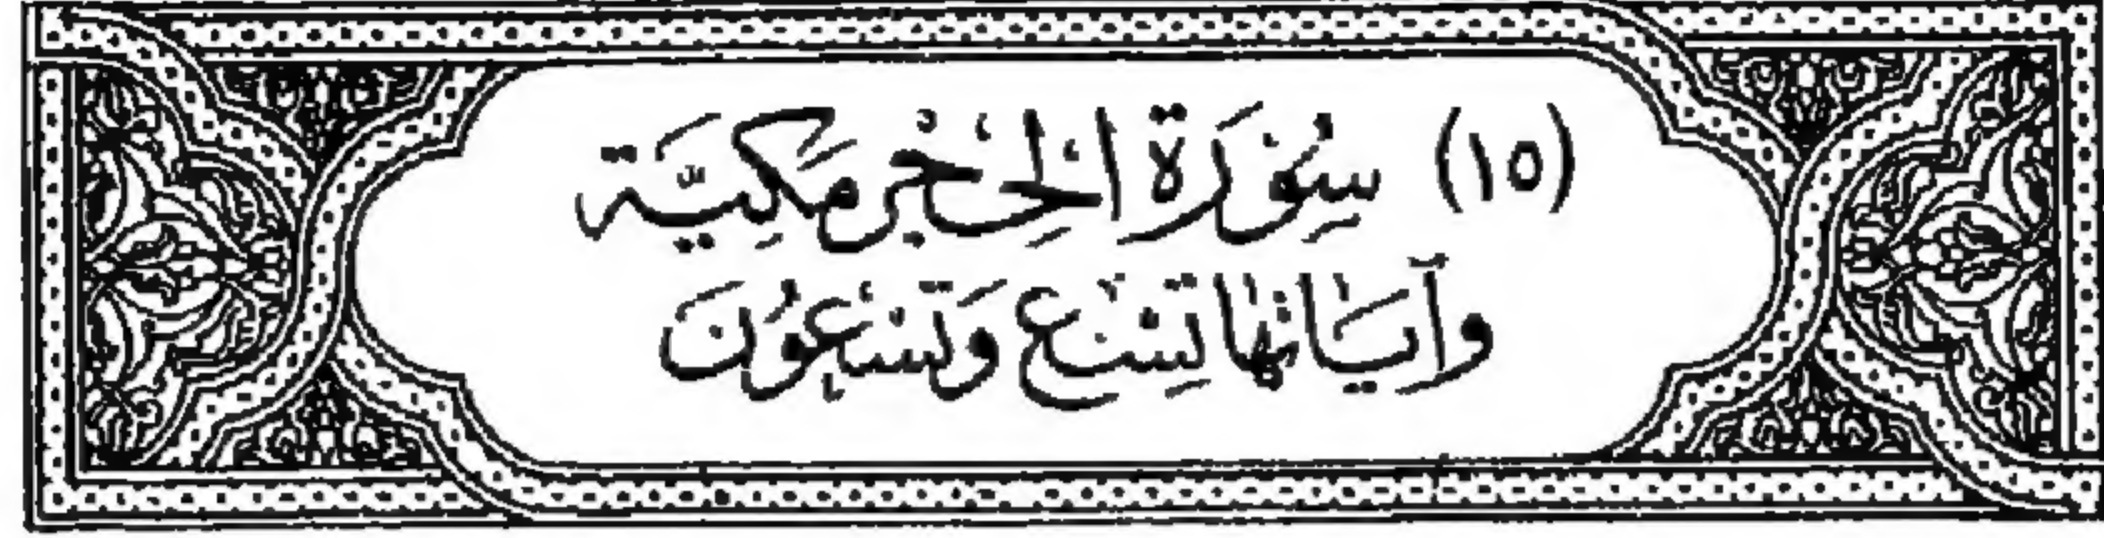 (١٥) سُوْرَة الْحِجْرِ مَكِيَّة
وآيَاتُهَا تِسْعٌ وَتِسْعُوْنَ